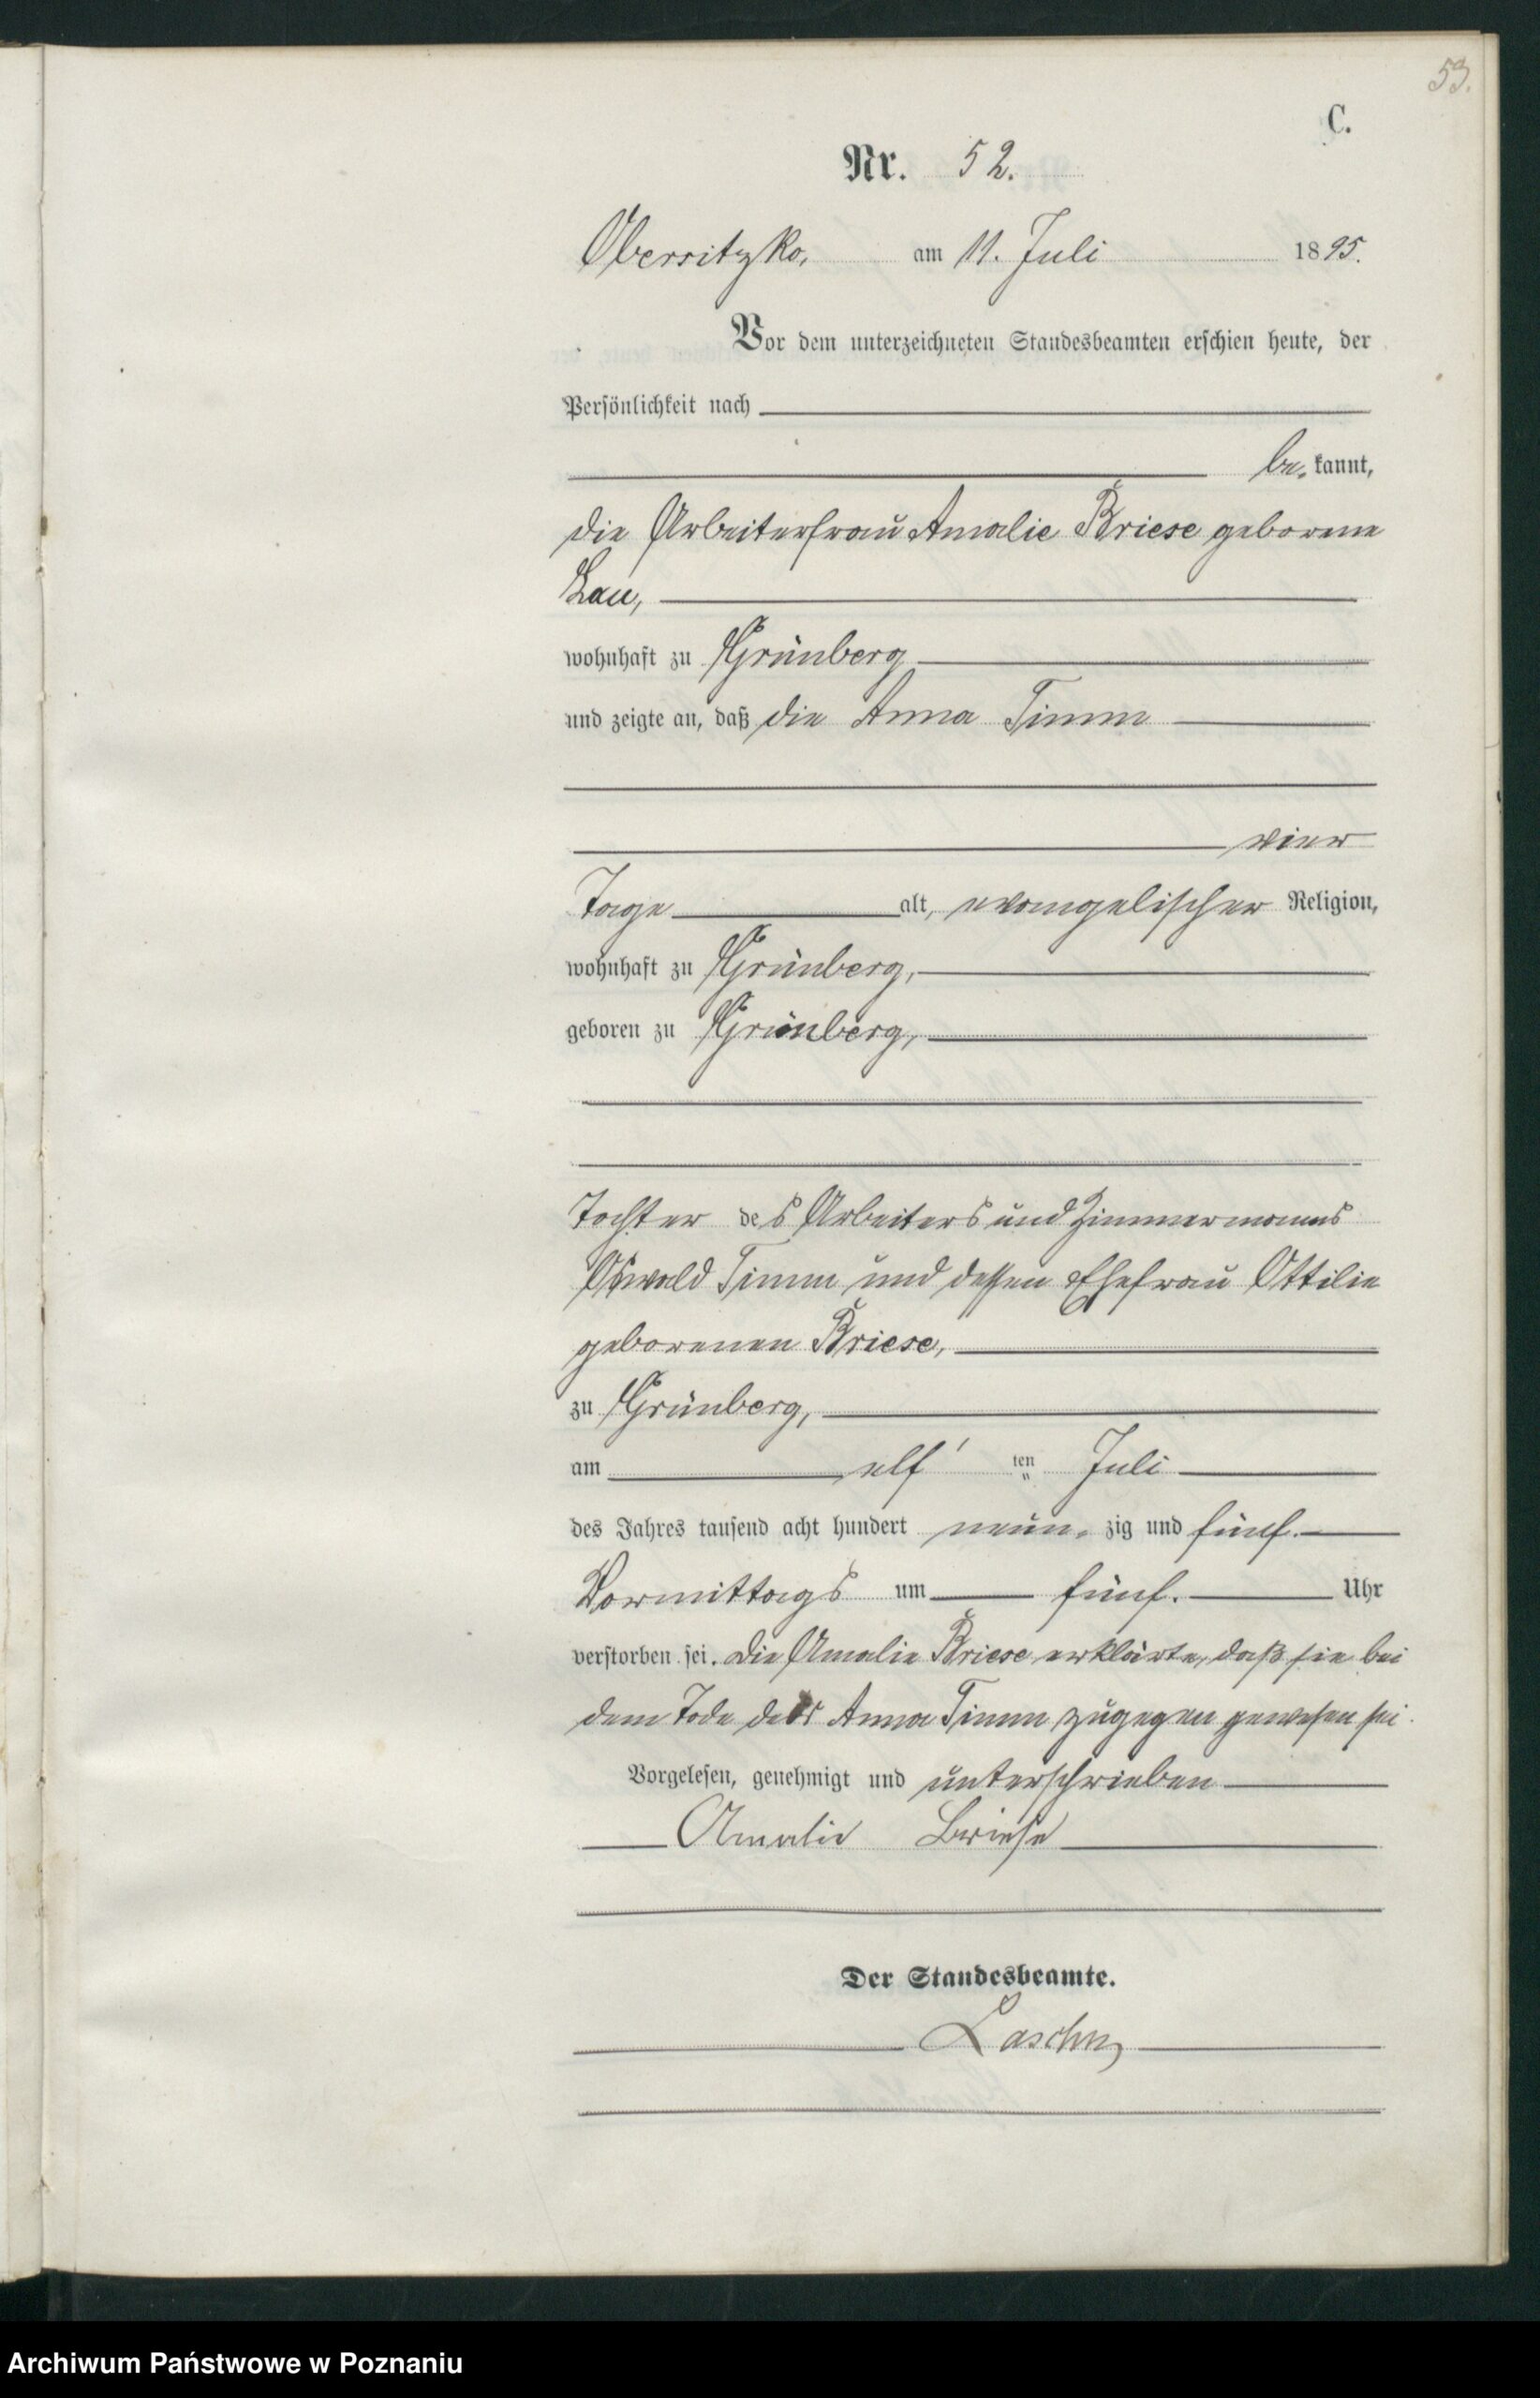 53.
C.
Nr. 52.
Obersitzko, am 11. Juli 1895.
Vor dem unterzeichneten Standesbeamten erschien heute, der
Persönlichkeit nach
be- kannt,
die Arbeiterfrau Amalie Briese geborene
Lau,
wohnhaft zu Grünberg
und zeigte an, daß die Anna Timm
vier
Tage alt, evangelischer Religion,
wohnhaft zu Grünberg,
geboren zu Grünberg,
Tochter des Arbeiters und Zimmermanns
Oswald Timm und dessen Ehefrau Ottilie
geborenen Briese,
zu Grünberg,
am elf ten Juli
des Jahres tausend acht hundert neun- zig und fünf.
Vormittags um fünf. Uhr
verstorben sei. Die Amalie Briese erklärte, daß sie bei
dem Tode der Anna Timm zugegen gewesen sei.
Vorgelesen, genehmigt und unterschrieben
Amalie Briese
Der Standesbeamte.
Archiwum Państwowe w Poznaniu